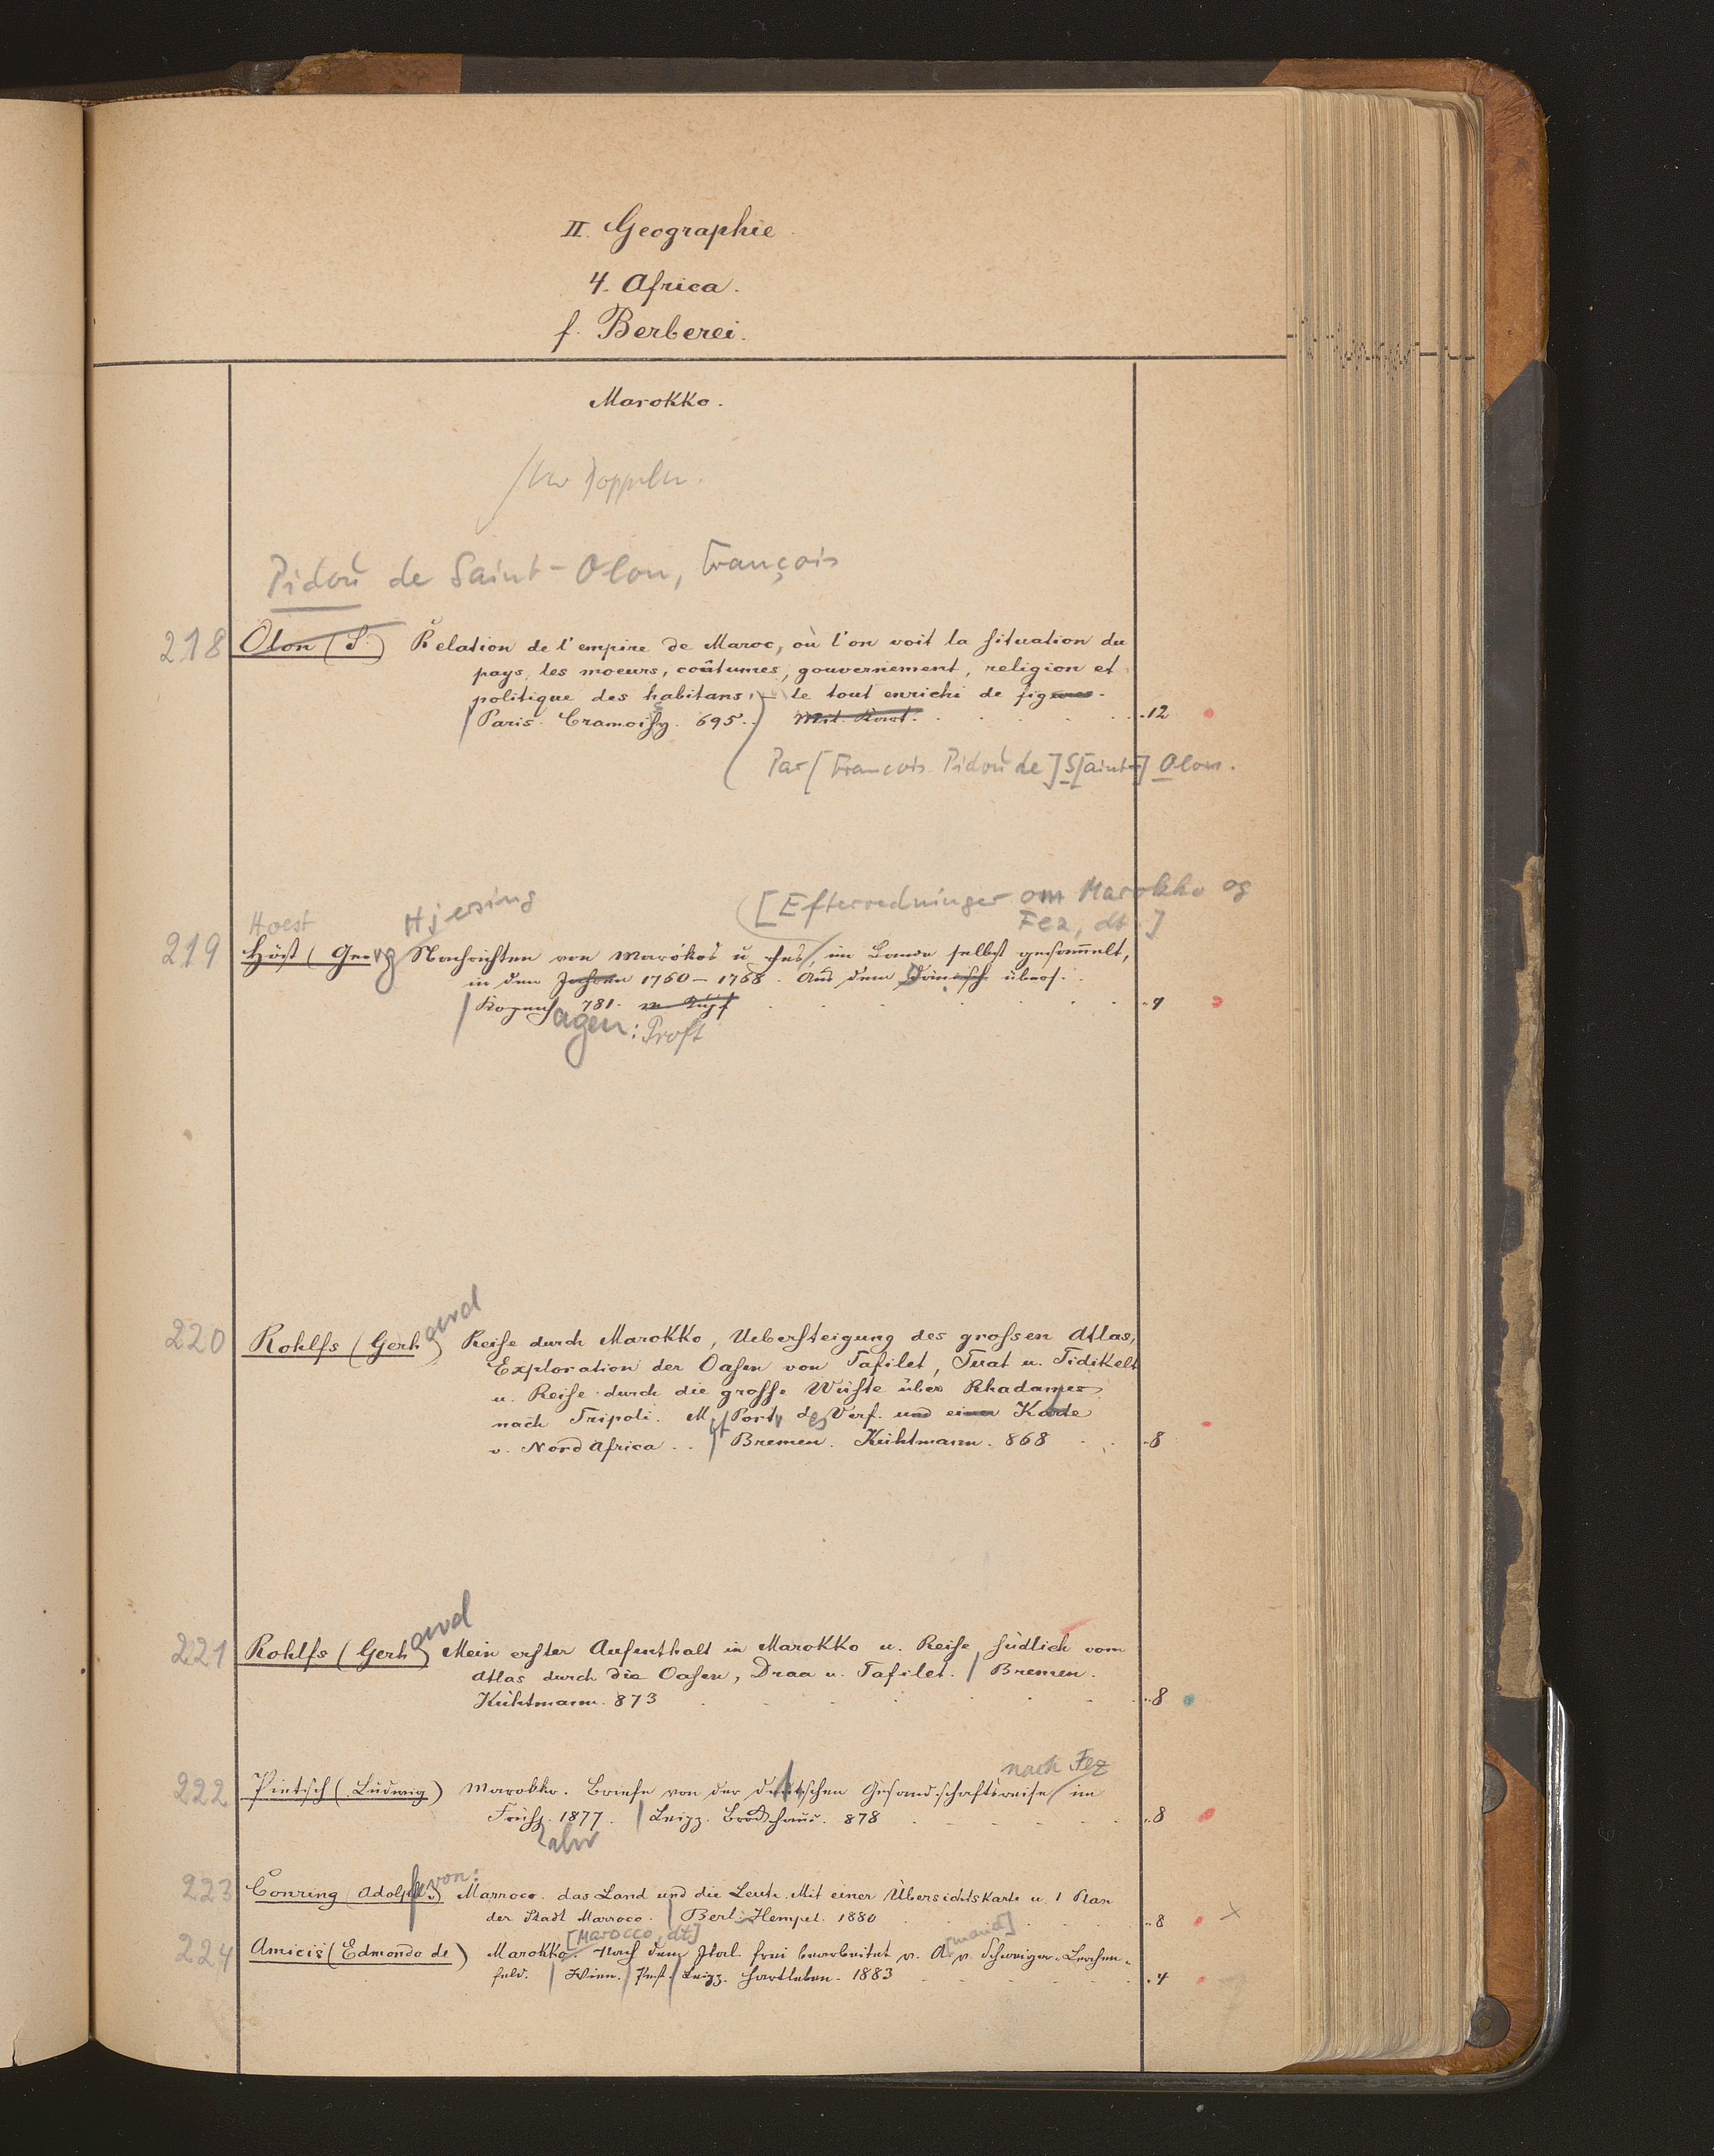 II. Geographie.
4. Africa.
f. Berberei.
Marokko.
Pidou de Saint-Olon, François
218 Olon (S.) Relation de l'empire de Maroc, où l'on voit la situation du
pays, les moeurs, coûtumes, gouvernement, religion et
politique des habitans, le tout enrichi de figures.
Paris. Cramoisy. 695. Mit Kart. 12
Par [François Pidou de] S[aint-] Olon.
Hoest Hjersing [Efterredninger om Marokko og
Fez, dt.]
219 Höst (Georg) Nachrichten von Marókos u. Fes, im Lande selbst gesammelt,
in den Jahren 1760-1768. Aus dem Dänisch übers.
Kopenhagen: Proft 781. m Kupf 4
220 Rohlfs (Gerhard) Reise durch Marokko, Uebersteigung des grossen Atlas,
Exploration der Oasen von Tafilet, Tuat u. Tidikelt
u. Reise durch die grosse Wüste über Rhadames
nach Tripoli. Mit Portr. des Verf. und einer Karte
v. Nord Africa. Bremen. Kühtmann. 868 8
221 Rohlfs (Gerhard) Mein erster Aufenthalt in Marokko u. Reise südlich vom
Atlas durch die Oasen, Draa u. Tafilet. Bremen.
Kühtmann. 873 8
nach Fez
222 Pietsch (Ludwig) Marokko. Briefe von der deutschen Gesandschaftsreise im
Frühjahr 1877. Leipz. Brockhaus. 878 8
223 Conring (Adolph v.) von: Marroco. das Land und die Leute. Mit einer Übersichtskarte u. 1 Plan
der Stadt Marroco. Berl. Hempel. 1880 8
[Marocco, dt] [mand]
224 Amicis (Edmondo de) Marokko. Nach dem Ital. frei bearbeitet v. A. v. Schweiger-Lerchen-
feld. Wien. Pest. Leipz. Hartleben. 1883 4